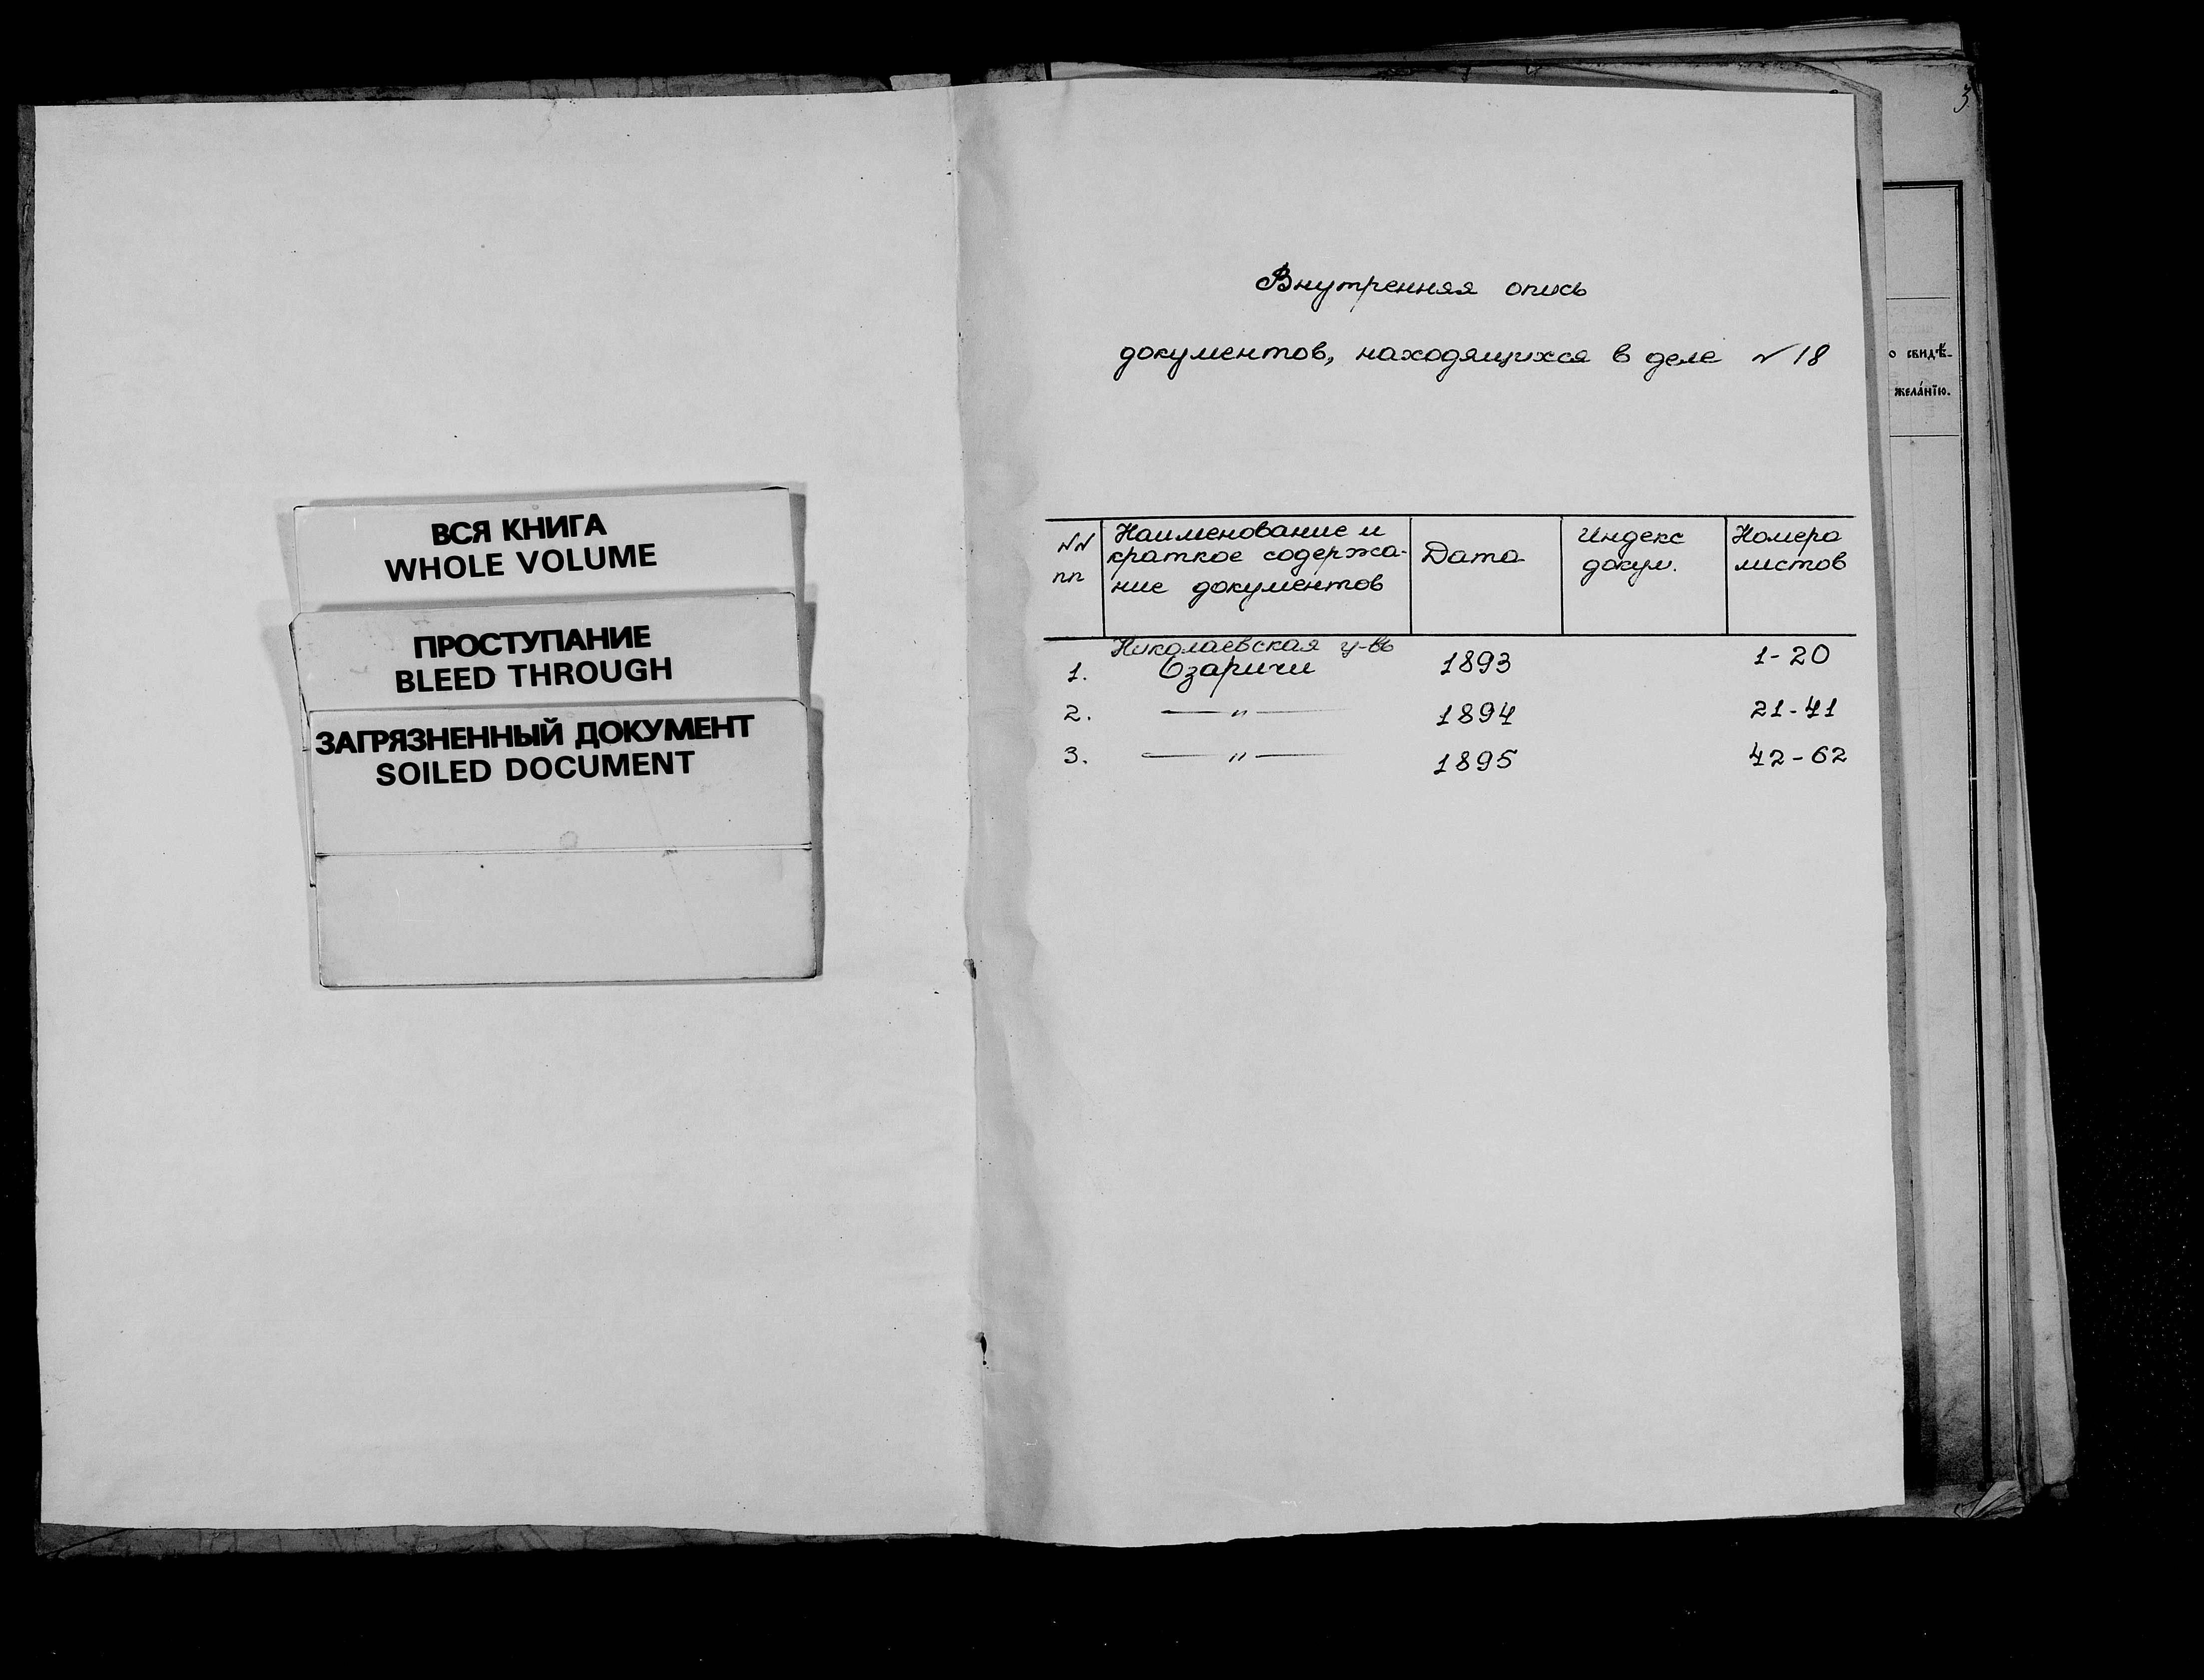 ВСЯ КНИГА
WHOLE VOLUME
ПРОСТУПАНИЕ
BLEED THROUGH
ЗАГРЯЗНЕННЫЙ ДОКУМЕНТ
SOILED DOCUMENT
3
Внутренняя опись
документов, находящихся в деле № 18
о свидѣ-
жела́нїю.
№№ пп
Наименование и
краткое содержа-
ние документов
Дата
Индекс
докум.
Номера
листов
Николаевская ц-вь
1. Озаричи 1893 1-20
2. —„— 1894 21-41
3. —„— 1895 42-62